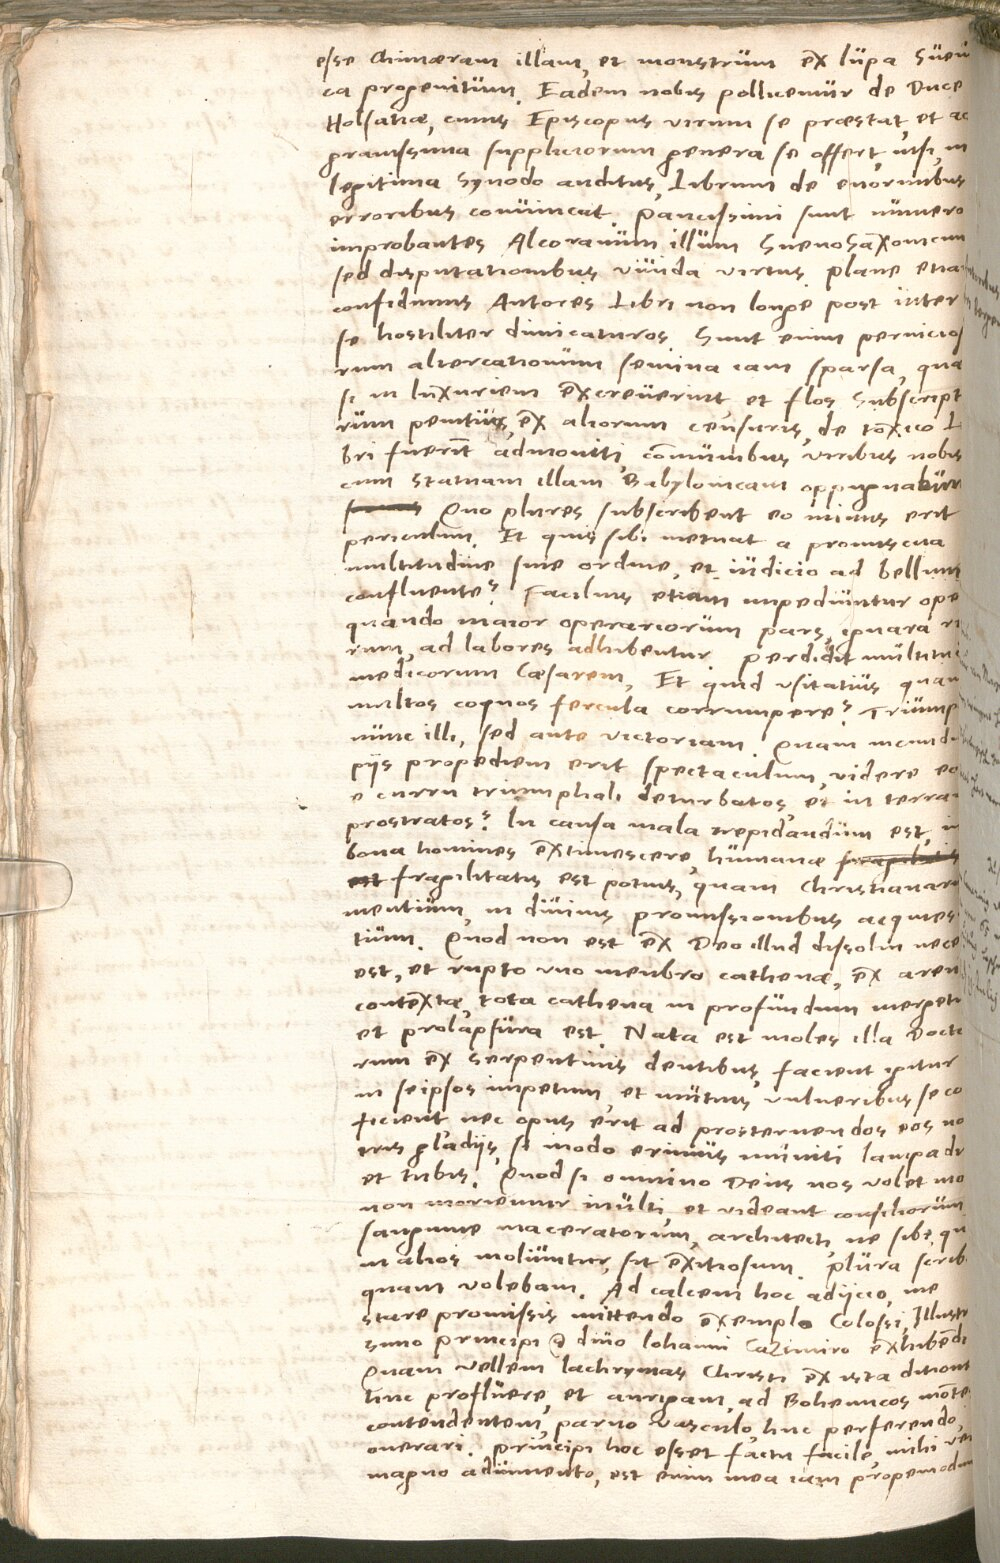 esse Chimæram illam, et monstrum ex lupa Sueu
ca progenitum. Eadem nobis pollicemur de Duce
Holsatiæ, cuius Episcopus virum se præstat, et ad
gravissima suppliciorum genera se offert, nisi, in
legitima Synodo auditus, Librum de enormibus
erroribus convincat. Paucissimi sunt numero
improbantes Alcoranum illum SuevoSaxonicum
sed disputationibus viuida virtus. Plane etia
confidimus Autores Libri non longe post inter
se hostiliter dimicaturos. Sunt enim pernicios
rum altercationum semina iam sparsa, quæ
si in luxuriem excreuerint et flos Subscript
rum penitus, ex aliorum censuris, de toxico L
bri fuerit admoniti, communibus viribus nobis
cum Statuam illam Babylonicam oppugnabun
Quo plures subscribent eo minus erit
periculum. Et quis sibi metuat a promiscua
multitudine sine ordine, et iudicio ad bellum
confluente? Facilius etiam impediuntur ope
quando maior operariorum pars, ignara r
rum, ad labores adhibentur. Perdidit multitu
medicorum Cæsarem, Et quid vsitatius quam
multos coquos fercula corrumpere? Triump
nunc illi, sed ante victoriam. Quam iucundu
piis propediem erit spectaculum, videre eo
e curru triumphali deturbatos, et in terram
prostratos? In causa mala trepidandum est, in
bona homines extimescere, humanæ fragilitatis
est fragilitatis est potius, quam Christianaru
mentium, in diuinis promissionibus acquies
tium. Quod non est ex Deo illud dissolui nece
est, et rupto vno membro cathenæ, ex aren
contextæ, tota cathena in profundum mergetu
et prolapsura est. Nata est moles illa Docto
rum ex serpentinis dentibus, facient igitur
in seipsos impetum, et mutuis vulneribus se co
ficient nec opus erit ad prosternendos eos no
tris gladiis, si modo erimus muniti lampadi
et tubis. Quod si omnino Deus nos volet mo
non moriemur inulti, et videant consiliorum
sanguine maceratorum, architecti, ne sibi qu
in alios moliuntur, sit exitiosum. Plura scrib
quam volebam. Ad calcem hoc adiicio, me
stare promissis mittendo exemplo Colossi, Illustr
simo principi D. duo Iohanni Cazimiro exhibendi
Quam vellem lachrymas Christi ex ista dition
huc profluere, et aurigam, ad Bohemicos monte
contendentem, paruo vasculo, huc perferendo,
onerari. Principi hoc esset factu facile, mihi ver
magno adiumento, est enim mea iam propemodum